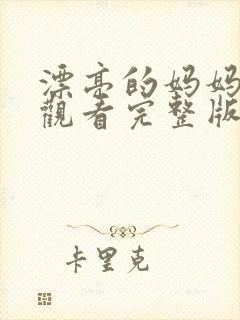 漂亮的妈妈
觀看完整版
卡里克